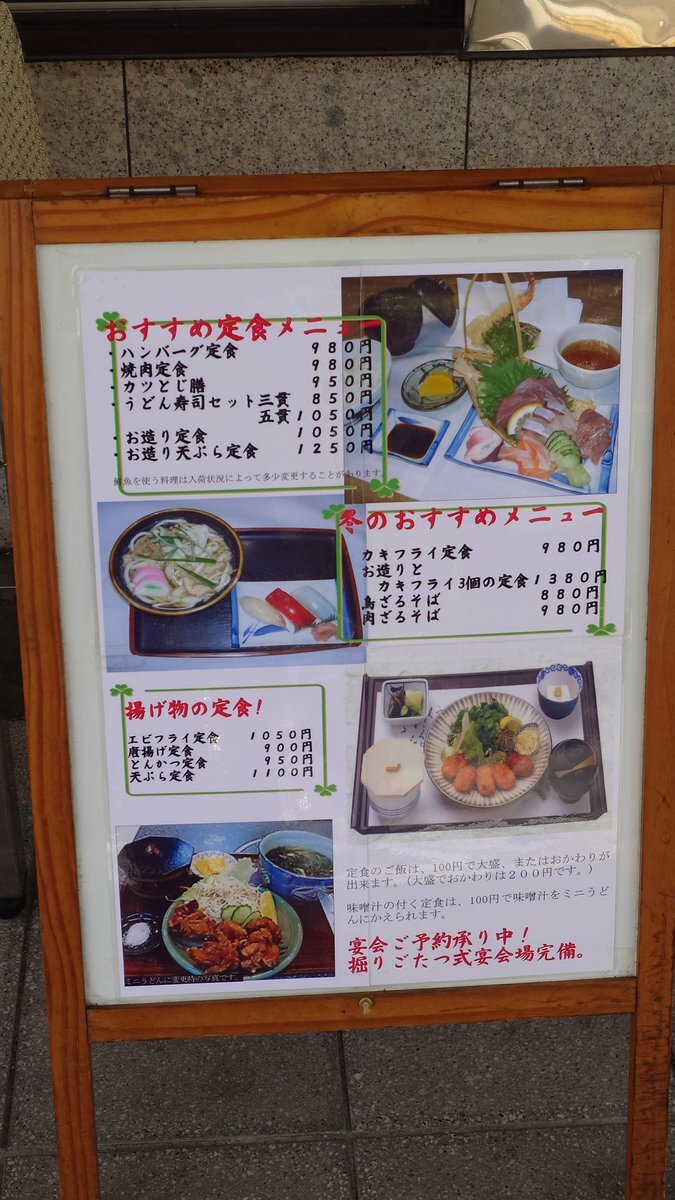 おすすめ定食メニュー
・ハンバーグ定食 980円
・焼肉定食 980円
・カツとじ膳 950円
・うどん寿司セット三貫 850円
五貫1050円
・お造り定食 1050円
・お造り天ぷら定食 1250円
鮮魚を使う料理は入荷状況によって多少変更することがあります。
冬のおすすめメニュー
カキフライ定食 980円
お造りと
カキフライ3個の定食1380円
鳥ざるそば 880円
肉ざるそば 980円
揚げ物の定食!
エビフライ定食 1050円
唐揚げ定食 900円
とんかつ定食 950円
天ぷら定食 1100円
ミニうどんに変更時の写真です。
定食のご飯は、100円で大盛、またはおかわりが
出来ます。(大盛でおかわりは200円です。)
味噌汁の付く定食は、100円で味噌汁をミニうど
んにかえられます。
宴会ご予約承り中!
掘りごたつ式宴会場完備。